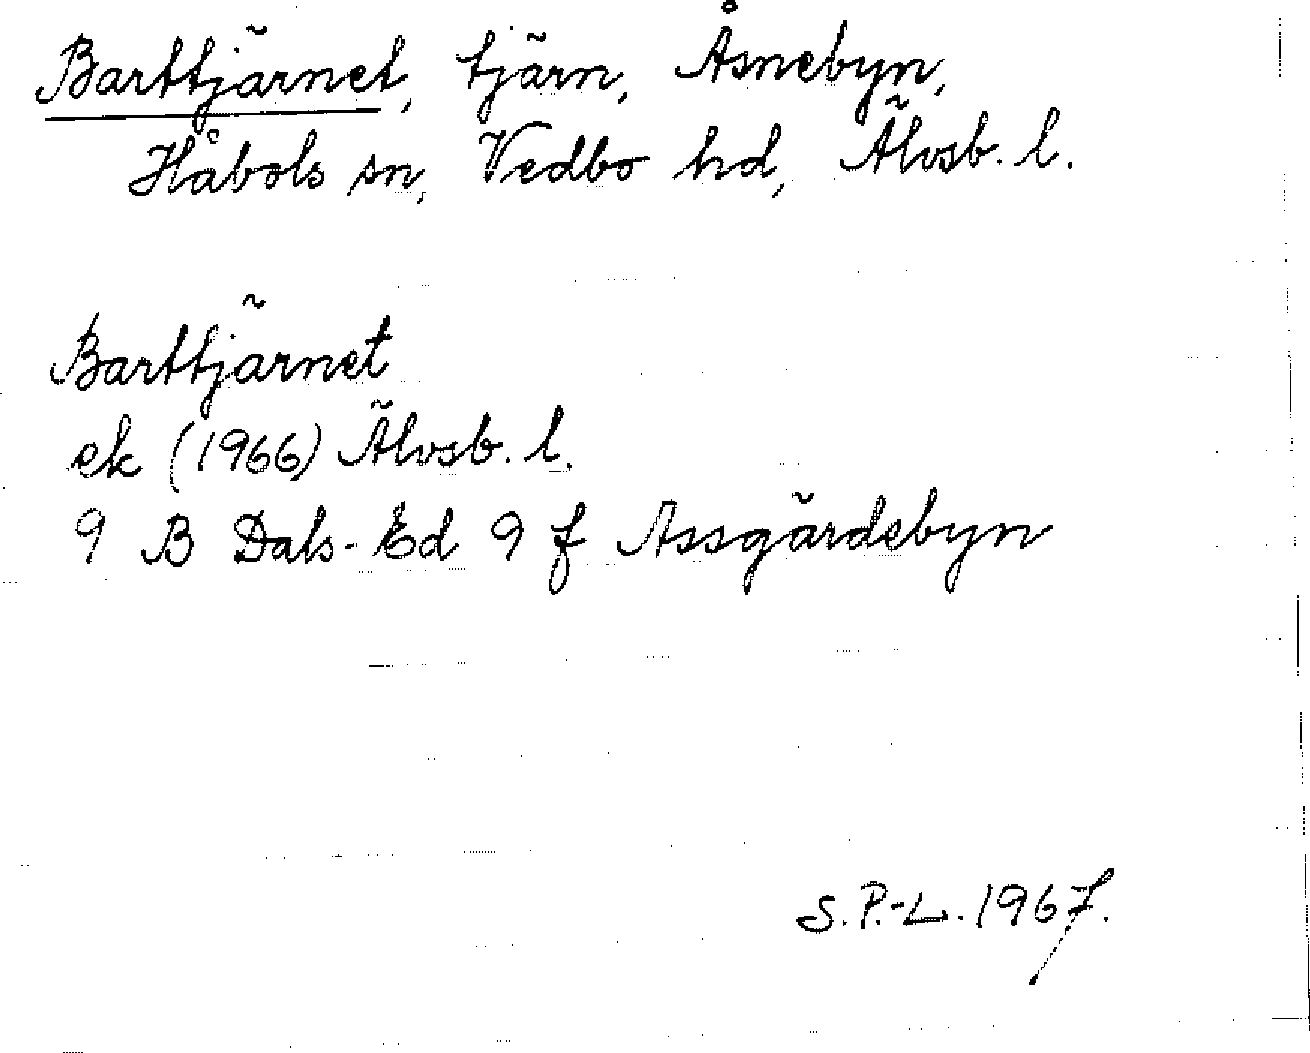 Barttjärnet, tjärn, Åsnebyn,
Håbols sn, Vedbo hd, Älvsb. l.
Barttjärnet
ek (1966) Älvsb. l.
9 B Dals-Ed 9 f Assgärdebyn
S.P.-L. 1967.